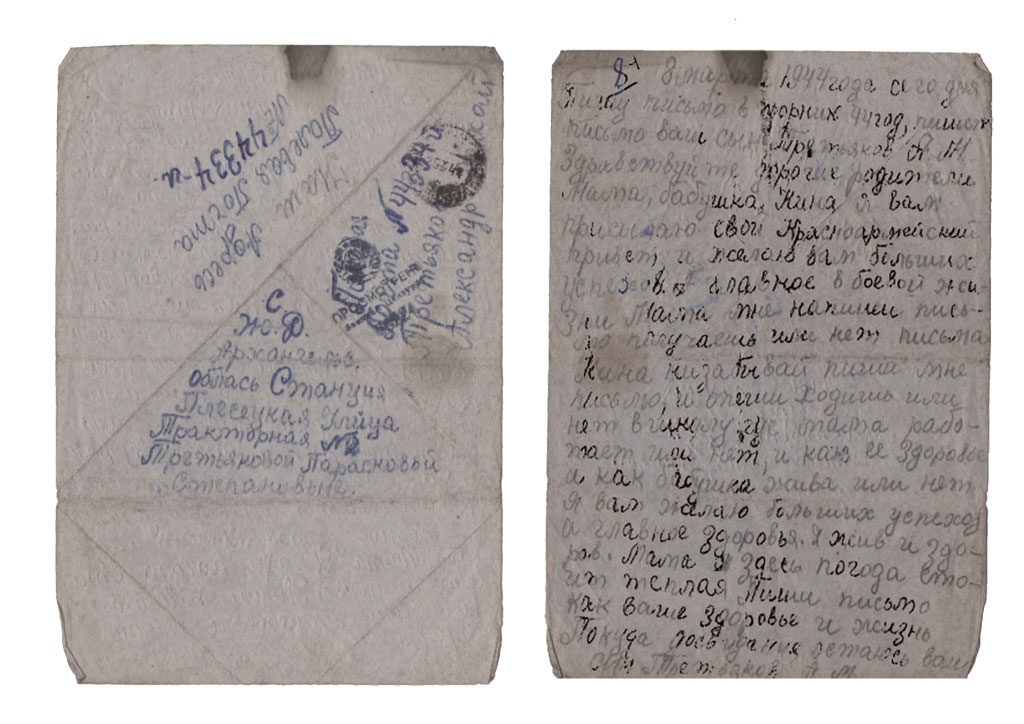 Полевая Почта
№ 44334-и.
Адрес
Полевая
Почта № 44334 и
Третьяко
Александр
ПРОСМОТРЕНО
С
Ж.Д.
Архангельс.
Область Станция
Плесецкая Улйца
Тракторная №
Третьяковой Парасковьй
Степановые.
8 марта 1944 года се го дня
Пишу письмо в торник 44 год, пишет
письмо ваш сын Третьяков А.М.
Здравствуйте дорогие родители
Мама, бабушка, Нина я вам
присылаю свой Красноармейский
привет и желаю вам больших
успехов а главное в боевой жи-
зни Мама мне напиши пись-
мо получаешь или нет письма
Нина низабывай пиши мне
письмо, и опеши ходишь или
нет в школу где мама рабо-
тает или нет, и как ее здоровье
а как бабушка жива или нет
я вам желаю больших успехов
а главное здоровья. Я жив и здо-
ров. Мама здесь погода сто-
ит теплая Пиши письмо
как ваше здоровье и жизнь
Покуда досвидания остаюсь ваш
Третьяков А.М.